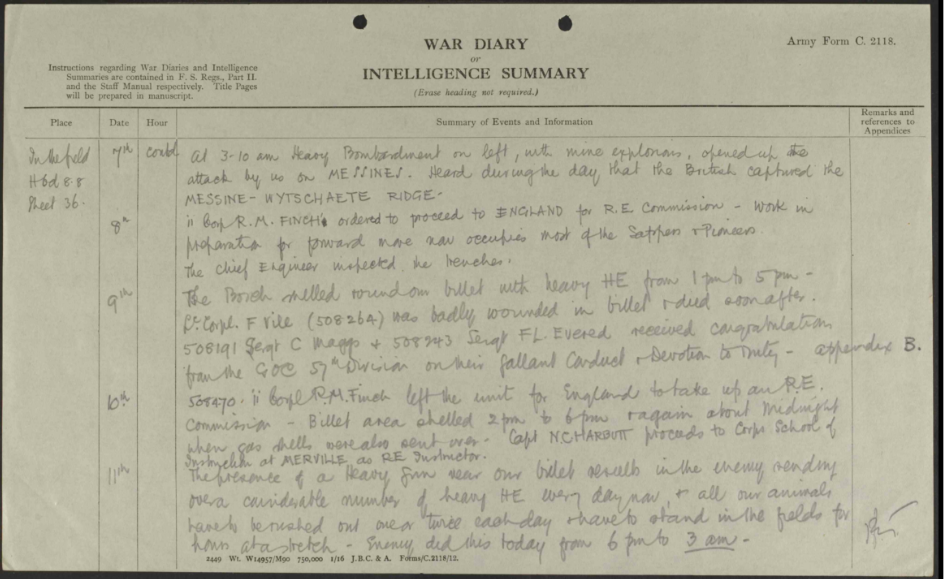 WAR DIARY
or
INTELLIGENCE SUMMARY
(Erase heading not required.)
Army Form C. 2118.
Instructions regarding War Diaries and Intelligence
Summaries are contained in F. S. Regs., Part II.
and the Staff Manual respectively. Title Pages
will be prepared in manuscript.
Place Date Hour Summary of Events and Information Remarks and references to Appendices
In the field 7th contd At 3-10 am Heavy Bombardment on left, with mine explosions, opened up the
H 6d 8.8 attack by us on MESSINES. Heard during the day that the British captured the
Sheet 36. MESSINE - WYTSCHAETE RIDGE -
8th Corpl R.M. FINCH ordered to proceed to ENGLAND for R.E. Commission - Work in
preparation for forward move now occupies most of the Sappers & Pioneers.
The Chief Engineer inspected the trenches.
9th The Bosch shelled round our billet with heavy HE from 1 pm to 5 pm -
Lt Corpl. F Vile (508264) was badly wounded in billet & died soon after.
508191 Sergt C Maggs & 508243 Sergt FL Evered received congratulation
from the GOC 57th Division on their Gallant Conduct & Devotion to Duty - appendix B.
10th 508470. Corpl R.M. Finch left the unit for England to take up an R.E.
Commission - Billet area shelled 2 pm to 6 pm & again about midnight
when gas shells were also sent over - Capt N.C. HARBUTT proceeds to Corps School of
Instruction at MERVILLE as RE Instructor.
11th The presence of a Heavy Gun near our billet results in the enemy sending
over a considerable number of heavy HE every day now, & all our animals
have to be rushed out once or twice each day & have to stand in the fields for
hours at a stretch - Enemy did this today from 6 pm to 3 am -
2449 Wt. W14957/M90 750,000 1/16 J.B.C. & A. Forms/C.2118/12.